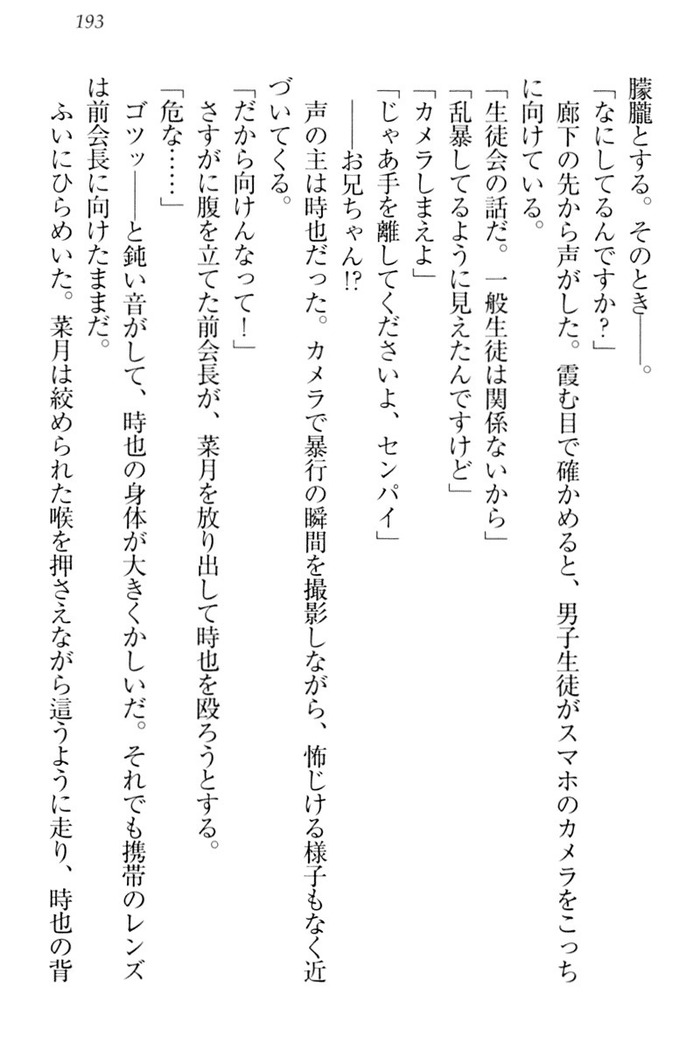 193
朦朧とする。そのとき――。
「なにしてるんですか？」
廊下の先から声がした。霞む目で確かめると、男子生徒がスマホのカメラをこっち
に向けている。
「生徒会の話だ。一般生徒は関係ないから」
「乱暴してるように見えたんですけど」
「カメラしまえよ」
「じゃあ手を離してくださいよ、センパイ」
――お兄ちゃん!?
声の主は時也だった。カメラで暴行の瞬間を撮影しながら、怖じける様子もなく近
づいてくる。
「だから向けんなって！」
さすがに腹を立てた前会長が、菜月を放り出して時也を殴ろうとする。
「危な……」
ゴツッ――と鈍い音がして、時也の身体が大きくかしいだ。それでも携帯のレンズ
は前会長に向けたままだ。
ふいにひらめいた。菜月は絞められた喉を押さえながら這うように走り、時也の背